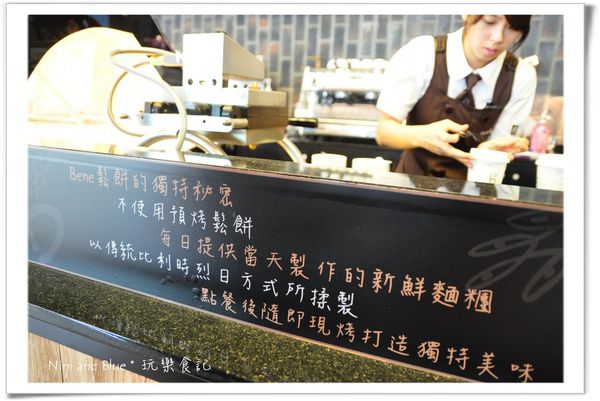 Bene鬆餅的獨特秘密
不使用預烤鬆餅
每日提供當天製作的新鮮麵糰
以傳統比利時烈日方式所揉製
點餐後隨即現烤打造獨特美味
Nini and Blue* 玩樂食記